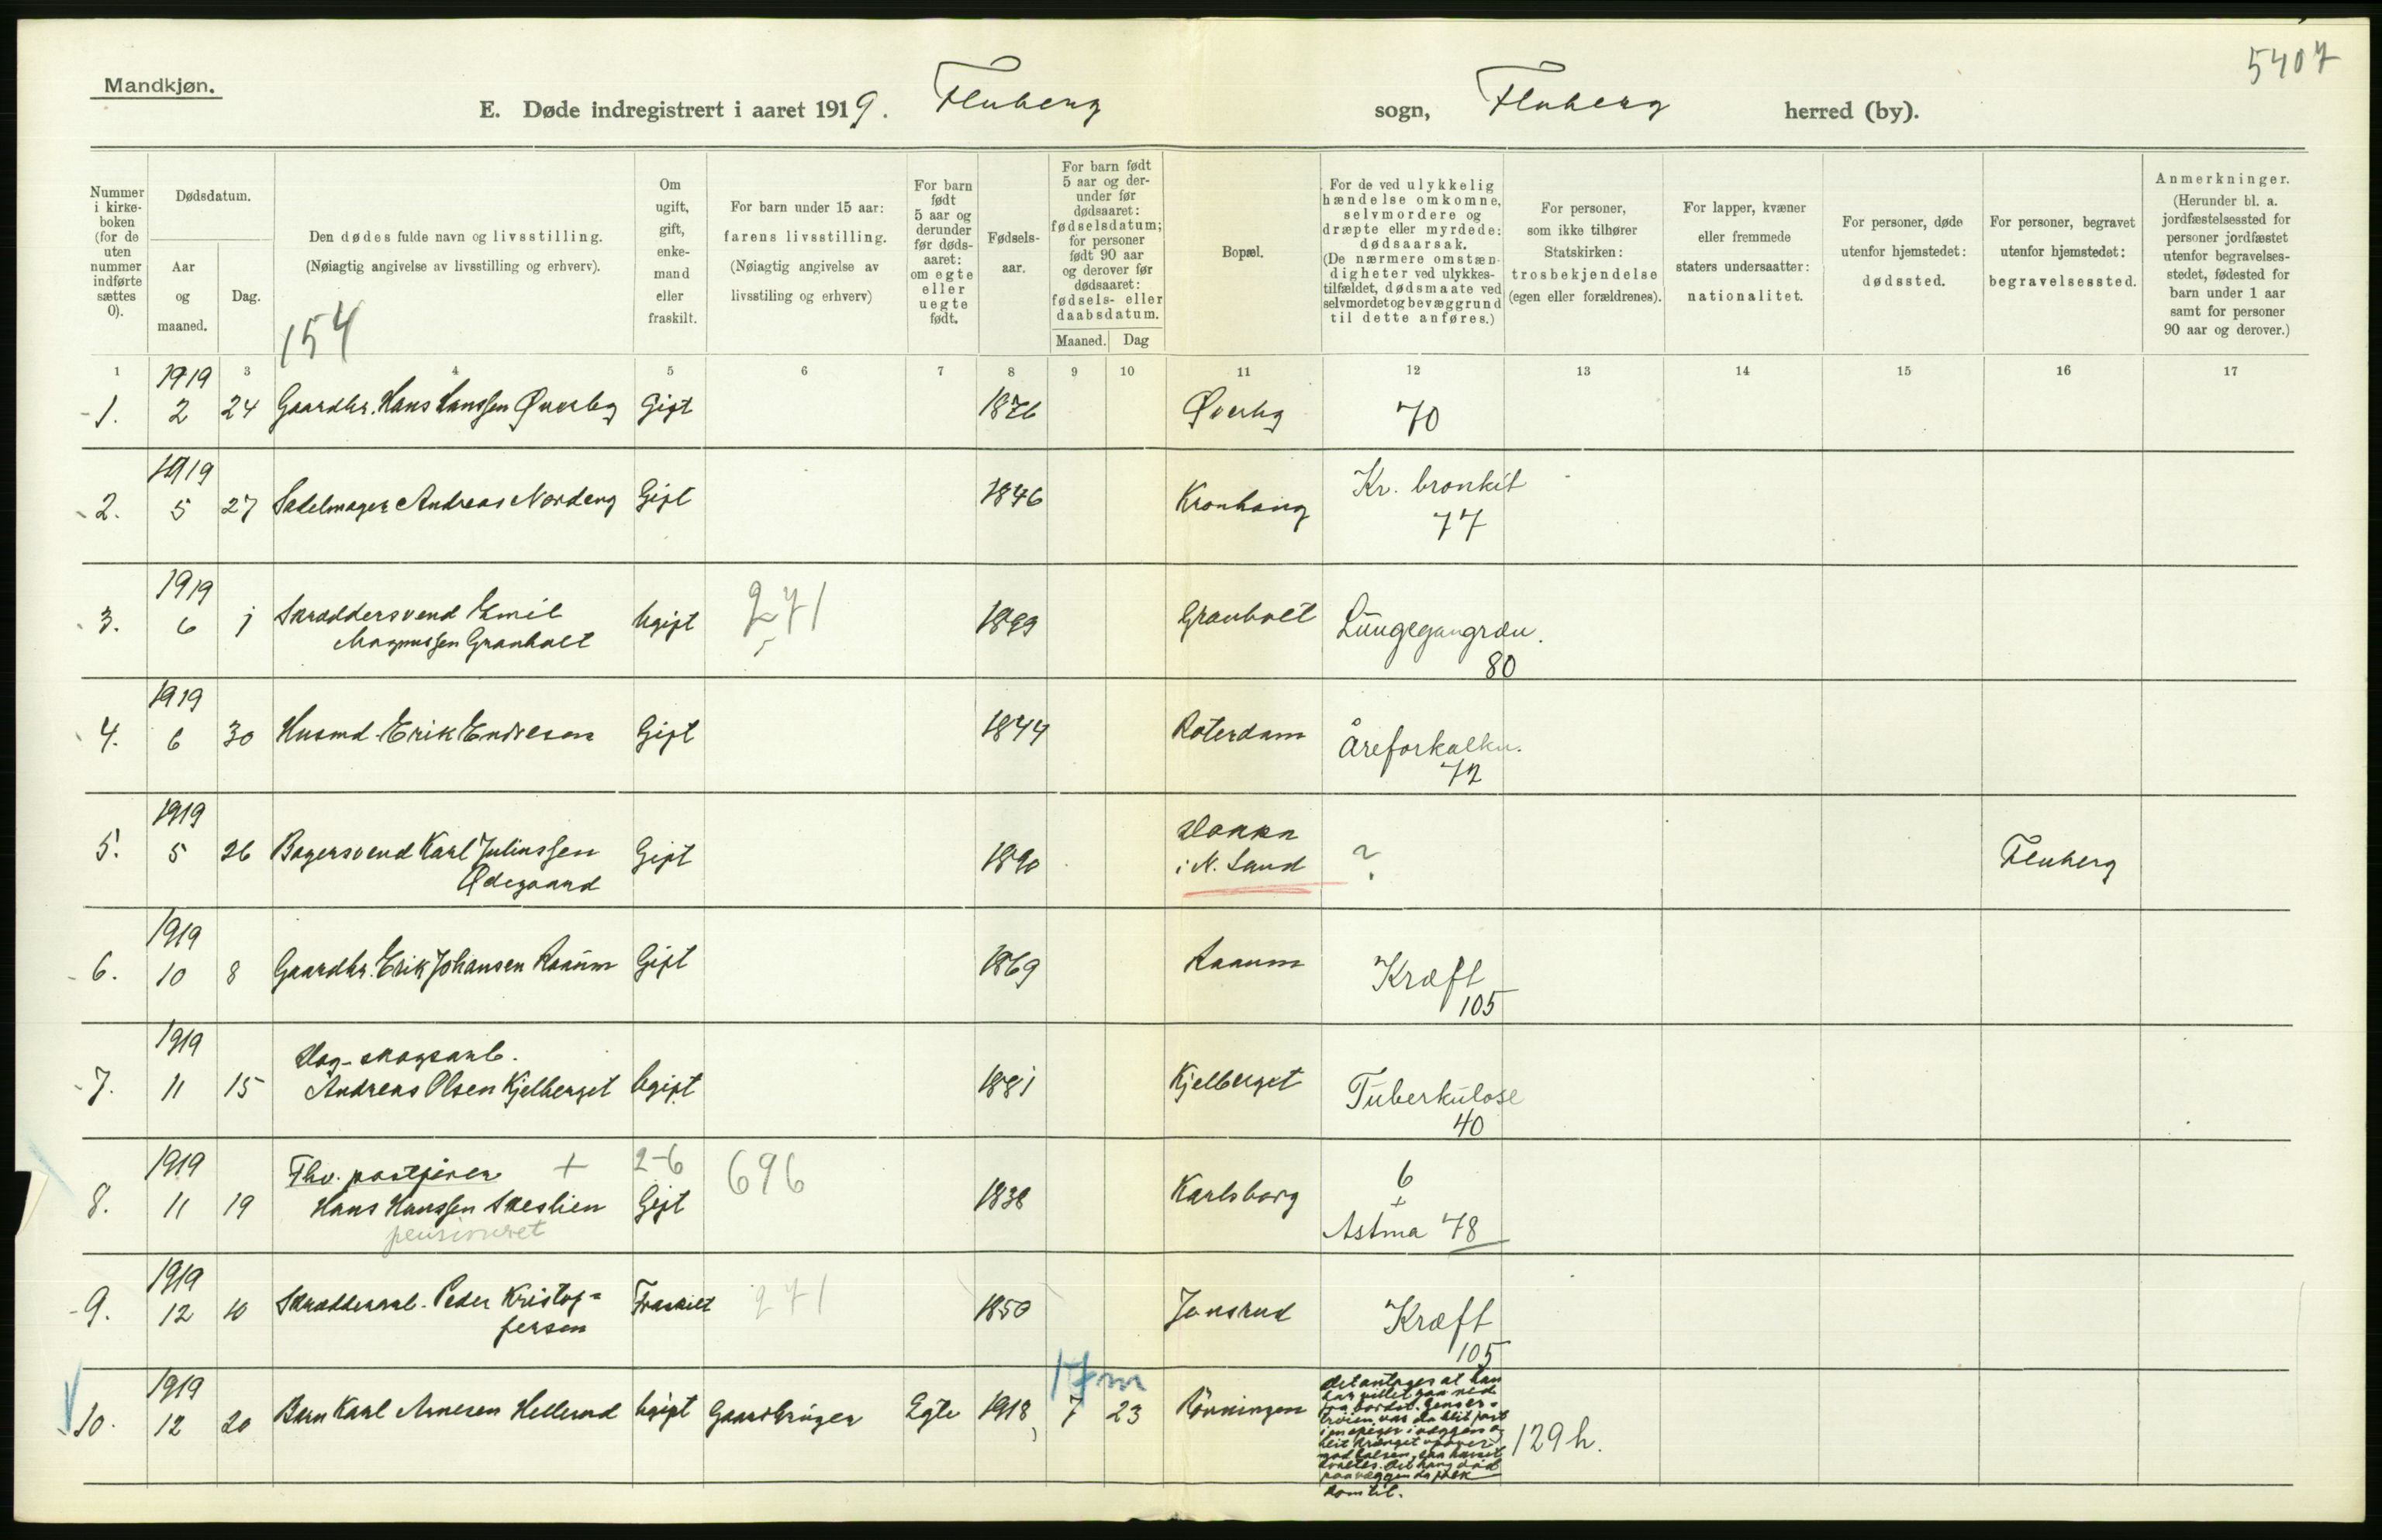 5407
Mandkjøn.
E. Døde indregistrert i aaret 1919. Fluberg sogn, Fluberg herred (by).
Nummer i kirkeboken (for de uten nummer indførte sættes 0).
Dødsdatum.
Aar og maaned.
Dag.
Den dødes fulde navn og livsstilling.
(Nøiagtig angivelse av livsstilling og erhverv).
154
Om ugift, gift, enkemand eller fraskilt.
For barn under 15 aar: farens livsstilling.
(Nøiagtig angivelse av livsstiling og erhverv)
For barn født 5 aar og derunder før dødsaaret: om egte eller uegte født.
Fødselsaar.
For barn født 5 aar og derunder før dødsaaret: fødselsdatum; for personer født 90 aar og derover før dødsaaret: fødsels- eller daabsdatum.
Maaned. Dag
Bopæl.
For de ved ulykkelig hændelse omkomne, selvmordere og dræpte eller myrdede: dødsaarsak.
(De nærmere omstændigheter ved ulykkestilfældet, dødsmaate ved selvmordet og bevæggrund til dette anføres.)
For personer, som ikke tilhører Statskirken: trosbekjendelse (egen eller forældrenes).
For lapper, kvæner eller fremmede staters undersaatter: nationalitet.
For personer, døde utenfor hjemstedet: dødssted.
For personer, begravet utenfor hjemstedet: begravelsessted.
Anmerkninger.
(Herunder bl. a. jordfæstelsessted for personer jordfæstet utenfor begravelsesstedet, fødested for barn under 1 aar samt for personer 90 aar og derover.)
1 3 4 5 6 7 8 9 10 11 12 13 14 15 16 17
1. 1919 2 24 Gaardbr. Hans Hanssen Øverby Gift 1876 Øverby 70
2. 1919 5 27 Sadelmager Andreas Nordeng Gift 1846 Kronhaug Kr. bronkit 77
3. 1919 6 1 Skræddersvend Emil Magnussen Granholt Ugift 271 1899 Granholt Lungegangræn. 80
4. 1919 6 30 Husmd. Erik Endresen Gift 1844 Roterdam Åreforkalkn. 72
5. 1919 5 26 Bagersvend Karl Juliussen Ødegaard Gift 1890 Dokka i N. Land ? Fluberg
6. 1919 10 8 Gaardbr. Erik Johansen Raaum Gift 1869 Raaum Kræft 105
7. 1919 11 15 Dag-skogsarb. Andreas Olsen Kjelberget Ugift 1881 Kjelberget Tuberkulose 40
8. 1919 11 19 Fhv. postfører + Hans Hanssen Skeslien pensioneret 2-6 Gift 696 1838 Karlsborg 6 + Astma 78
9. 1919 12 10 Skrædderarb. Peder Kristoffersen Fraskilt 271 1850 Jonsrud Kræft 105
10. 1919 12 20 Barn Karl Arnesen Hellerud Ugift Gaardbruger Egte 1918 17 m 7 23 Rönningen
det antages at han
har villet gaa ned
fra bordet.
129 h.